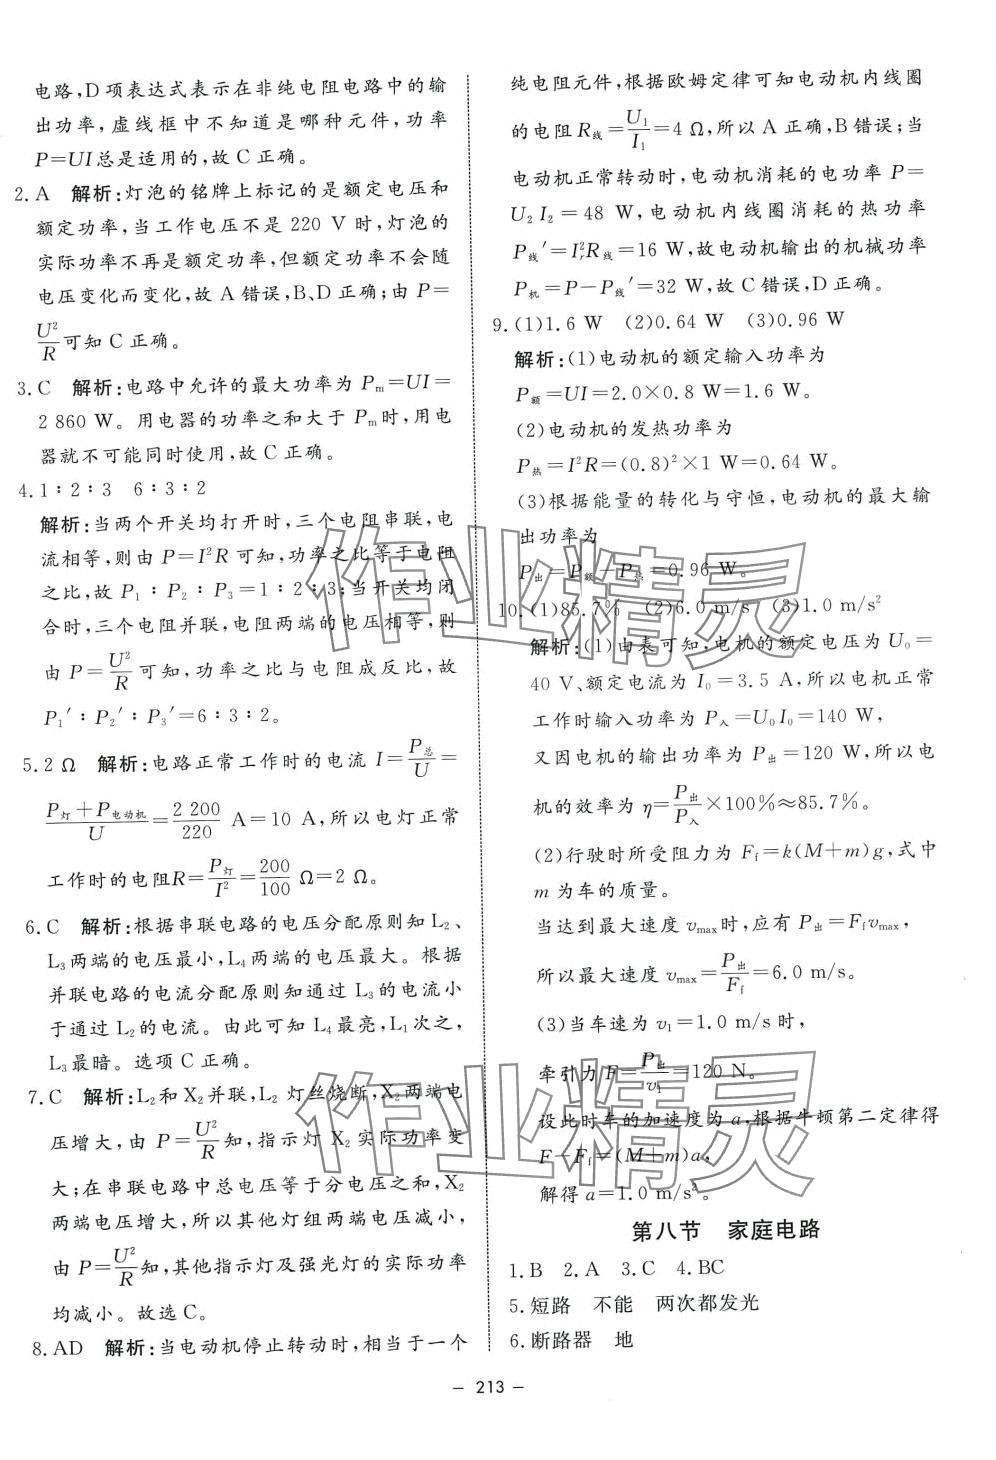 电路,D项表达式表示在非纯电阻电路中的输
出功率,虚线框中不知道是哪种元件,功率
P=UI总是适用的,故C正确。
2.A 解析:灯泡的铭牌上标记的是额定电压和
额定功率,当工作电压不是220 V时,灯泡的
实际功率不再是额定功率,但额定功率不会随
电压变化而变化,故A错误,B、D正确;由P=
U²/R可知C正确。
3.C 解析:电路中允许的最大功率为Pₘ=UI=
2 860 W。用电器的功率之和大于Pₘ时,用电
器就不可能同时使用,故C正确。
4.1∶2∶3 6∶3∶2
解析:当两个开关均打开时,三个电阻串联,电
流相等,则由P=I²R可知,功率之比等于电阻
之比,故P₁∶P₂∶P₃=1∶2∶3;当开关均闭
合时,三个电阻并联,电阻两端的电压相等,则
由P=U²/R可知,功率之比与电阻成反比,故
P₁′∶P₂′∶P₃′=6∶3∶2。
5.2 Ω 解析:电路正常工作时的电流I=P总/U=
(P灯+P电动机)/U=2 200/220 A=10 A,所以电灯正常
工作时的电阻R=P灯/I²=200/100 Ω=2 Ω。
6.C 解析:根据串联电路的电压分配原则知L₂、
L₃两端的电压最小,L₄两端的电压最大。根据
并联电路的电流分配原则知通过L₃的电流小
于通过L₂的电流。由此可知L₄最亮,L₁次之,
L₃最暗。选项C正确。
7.C 解析:L₂和X₂并联,L₂灯丝烧断,X₂两端电
压增大,由P=U²/R知,指示灯X₂实际功率变
大;在串联电路中总电压等于分电压之和,X₂
两端电压增大,所以其他灯组两端电压减小,
由P=U²/R知,其他指示灯及强光灯的实际功率
均减小。故选C。
8.AD 解析:当电动机停止转动时,相当于一个
纯电阻元件,根据欧姆定律可知电动机内线圈
的电阻R线=U₁/I₁=4 Ω,所以A正确,B错误;当
电动机正常转动时,电动机消耗的电功率P=
U₂I₂=48 W,电动机内线圈消耗的热功率
P线′=I₂²R线=16 W,故电动机输出的机械功率
P机=P-P线′=32 W,故C错误,D正确。
9.(1)1.6 W (2)0.64 W (3)0.96 W
解析:(1)电动机的额定输入功率为
P额=UI=2.0×0.8 W=1.6 W。
(2)电动机的发热功率为
P热=I²R=(0.8)²×1 W=0.64 W。
(3)根据能量的转化与守恒,电动机的最大输
出功率为
P出=P额-P热=0.96 W。
10.(1)85.7% (2)6.0 m/s (3)1.0 m/s²
解析:(1)由表可知,电机的额定电压为U₀=
40 V、额定电流为I₀=3.5 A,所以电机正常
工作时输入功率为P入=U₀I₀=140 W,
又因电机的输出功率为P出=120 W,所以电
机的效率为η=P出/P入×100%≈85.7%。
(2)行驶时所受阻力为Ff=k(M+m)g,式中
m为车的质量。
当达到最大速度vmax时,应有P出=Ffvmax,
所以最大速度vmax=P出/Ff=6.0 m/s。
(3)当车速为v₁=1.0 m/s时,
牵引力F=P出/v₁=120 N。
设此时车的加速度为a,根据牛顿第二定律得
F-Ff=(M+m)a,
解得a=1.0 m/s²。
第八节 家庭电路
1.B 2.A 3.C 4.BC
5.短路 不能 两次都发光
6.断路器 地
- 213 -
作业精灵
作业精灵